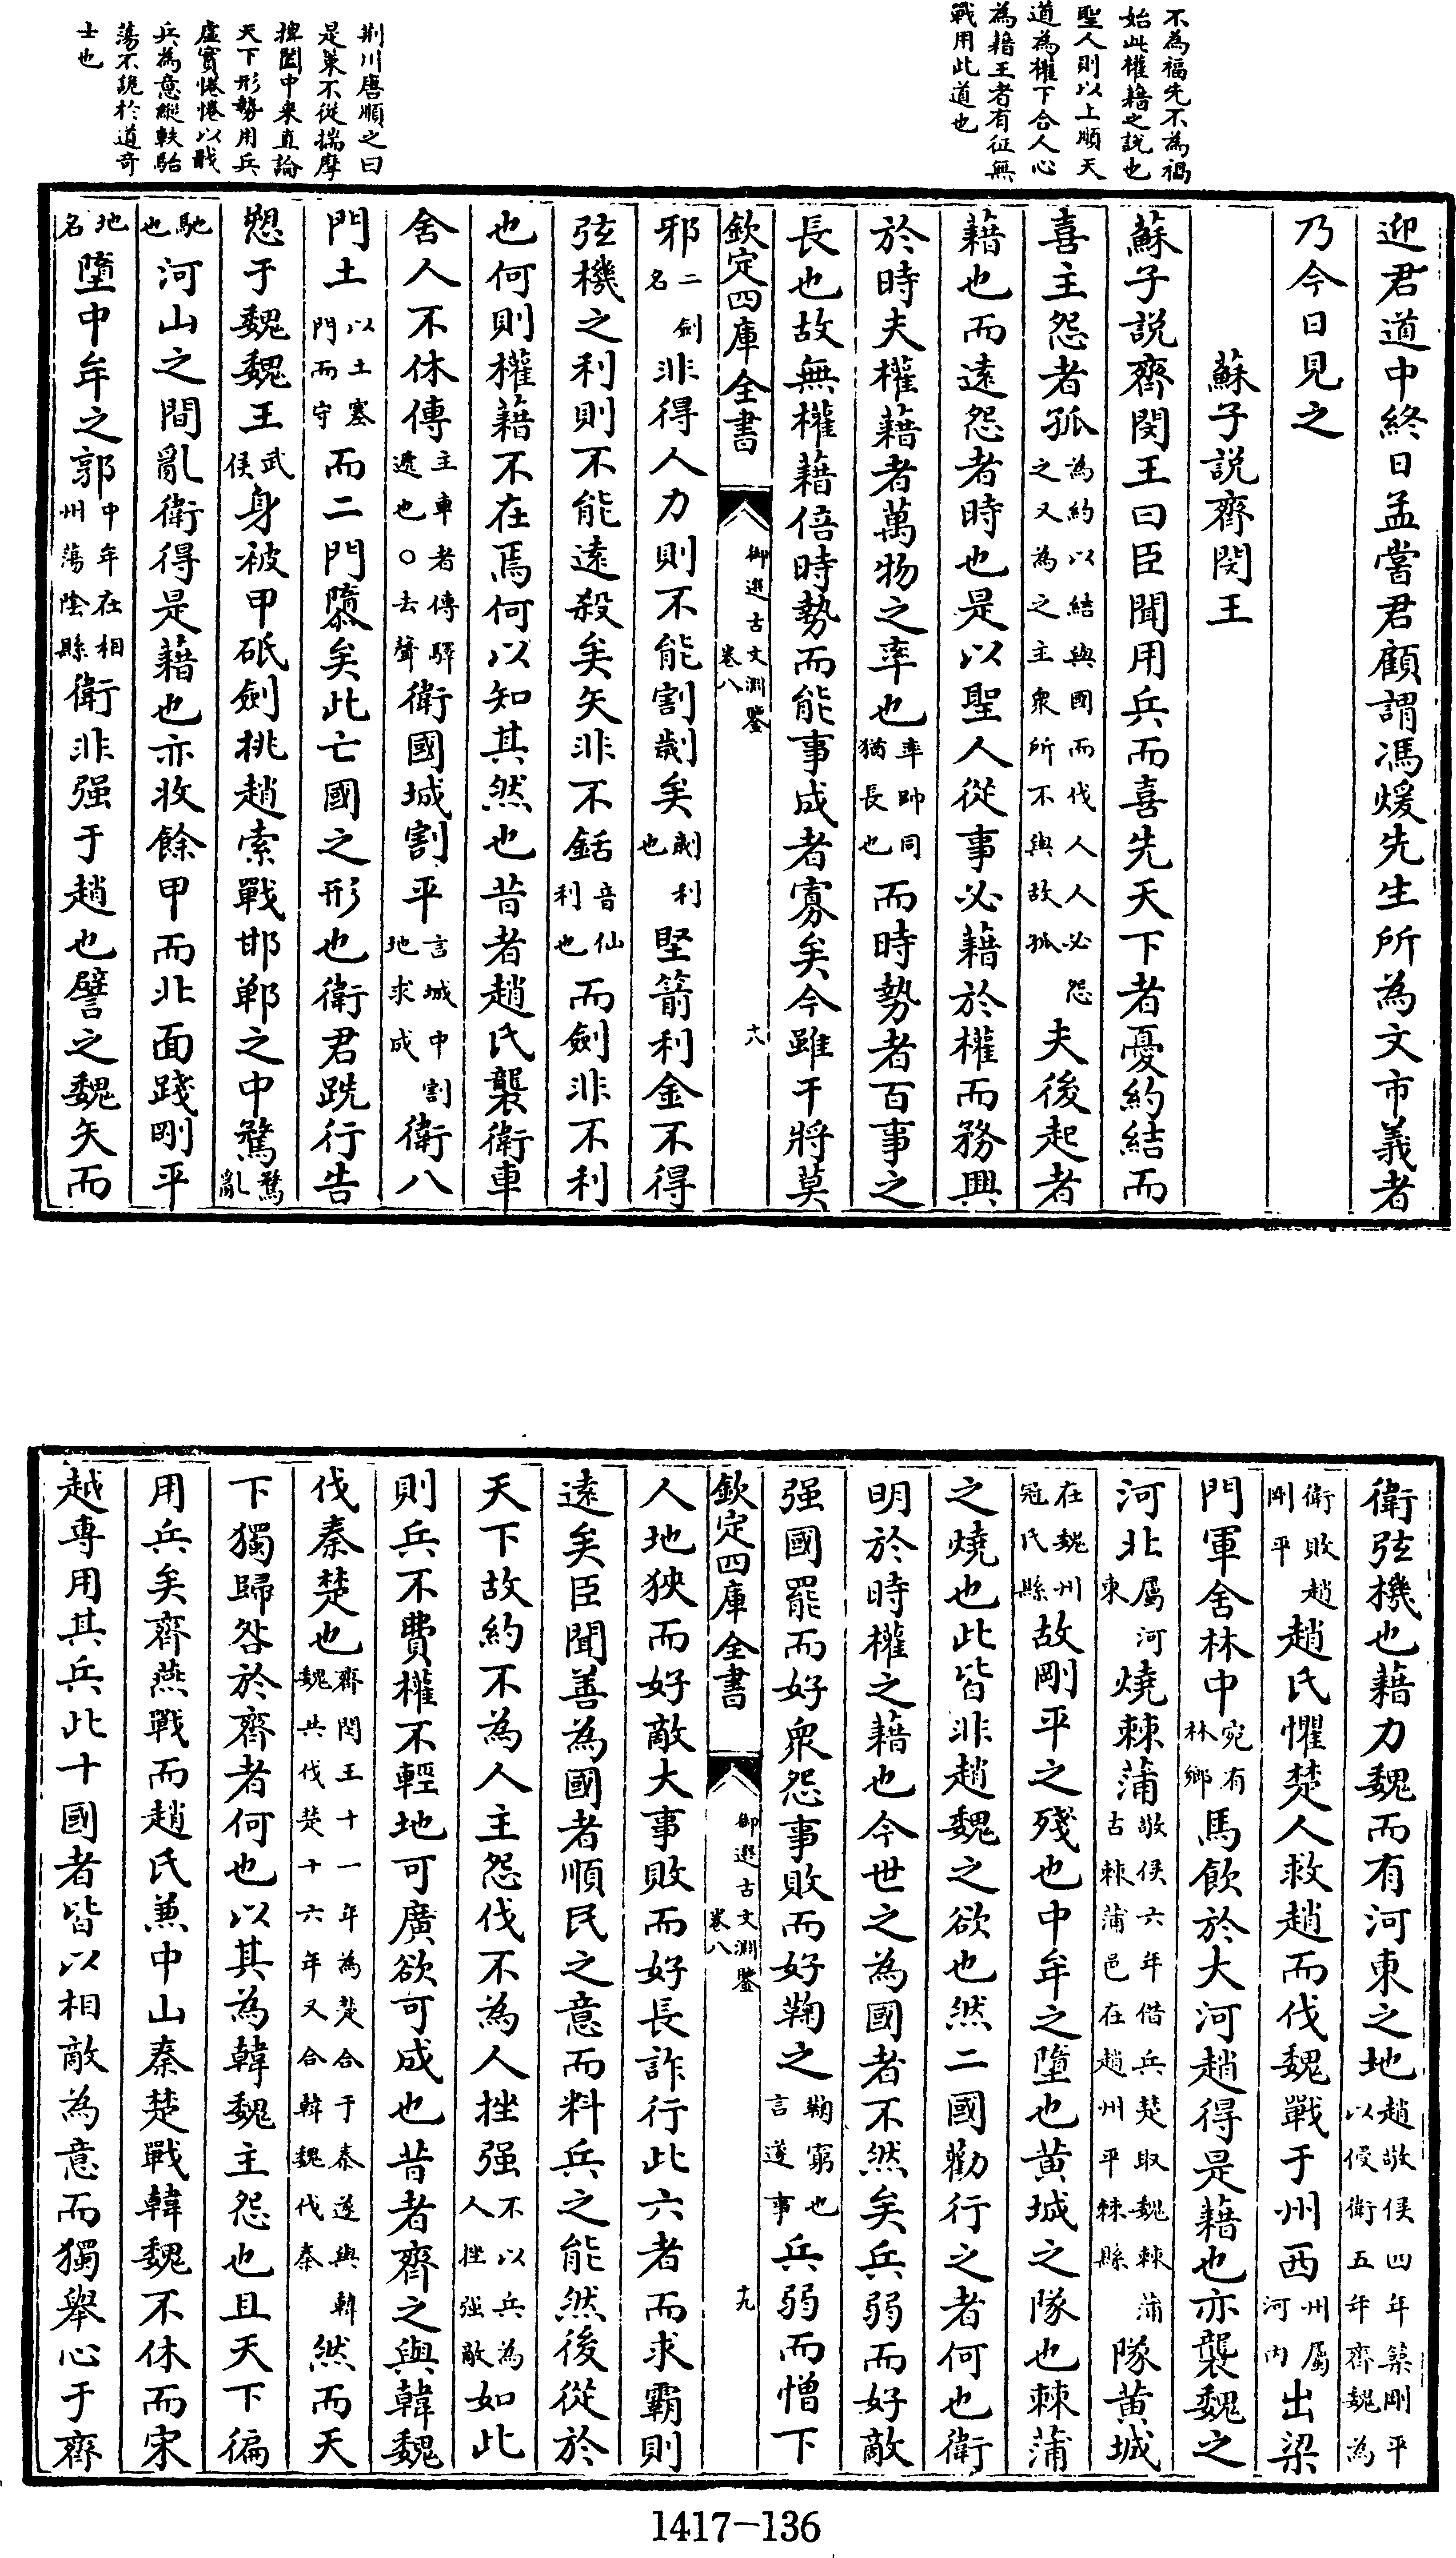 不為福先不為禍
始此權藉之說也
聖人則以上順天
道為權下合人心
為藉王者有征無
戰用此道也
荆川唐順之曰
是策不從揣摩
捭闔中來直論
天下形勢用兵
虛實惓惓以戢
兵為意縱軼駘
蕩不詭於道奇
士也
迎君道中終日孟嘗君顧謂馮煖先生所為文市義者
乃今日見之
蘇子說齊閔王
蘇子說齊閔王曰臣聞用兵而喜先天下者憂約結而
喜主怨者孤為約以結與國而伐人人必怨之又為之主衆所不與故孤夫後起者
藉也而遠怨者時也是以聖人從事必藉於權而務興
於時夫權藉者萬物之率也率帥同猶長也而時勢者百事之
長也故無權藉倍時勢而能事成者寡矣今雖干將莫
欽定四庫全書 御選古文淵鑒 卷八 十八
邪二劍名非得人力則不能割劌矣劌利也堅箭利金不得
弦機之利則不能遠殺矣矢非不銛音仙利也而劍非不利
也何則權藉不在焉何以知其然也昔者趙氏襲衛車
舍人不休傳主車者傳驛遞也○去聲衛國城割平言城中割地求成衛八
門土以土塞門而守而二門隳矣此亡國之形也衛君跣行告
愬于魏魏王武侯身被甲砥劍挑趙索戰邯鄲之中騖騖亂
馳也河山之間亂衛得是藉也亦收餘甲而北面踐剛平
地名墮中牟之郭中牟在相州蕩陰縣衛非强于趙也譬之魏矢而
衛弦機也藉力魏而有河東之地趙敬侯四年築剛平以侵衛五年齊魏為
衛敗趙剛平趙氏懼楚人救趙而伐魏戰于州西州屬河內出梁
門軍舍林中宛有林鄉馬飲於大河趙得是藉也亦襲魏之
河北屬河東燒棘蒲敬侯六年借兵楚取魏棘蒲古棘蒲邑在趙州平棘縣隊黃城
在魏州冠氏縣故剛平之殘也中牟之墮也黃城之隊也棘蒲
之燒也此皆非趙魏之欲也然二國勸行之者何也衛
明於時權之藉也今世之為國者不然矣兵弱而好敵
强國罷而好衆怨事敗而好鞠之鞠窮也言遂事兵弱而憎下
欽定四庫全書 御選古文淵鑒 卷八 十九
人地狹而好敵大事敗而好長詐行此六者而求霸則
遠矣臣聞善為國者順民之意而料兵之能然後從於
天下故約不為人主怨伐不為人挫强不以兵為人挫强敵如此
則兵不費權不輕地可廣欲可成也昔者齊之與韓魏
伐秦楚也齊閔王十一年為楚合于秦遂與韓魏共伐楚十六年又合韓魏伐秦然而天
下獨歸咎於齊者何也以其為韓魏主怨也且天下徧
用兵矣齊燕戰而趙氏兼中山秦楚戰韓魏不休而宋
越專用其兵此十國者皆以相敵為意而獨舉心于齊
1417-136